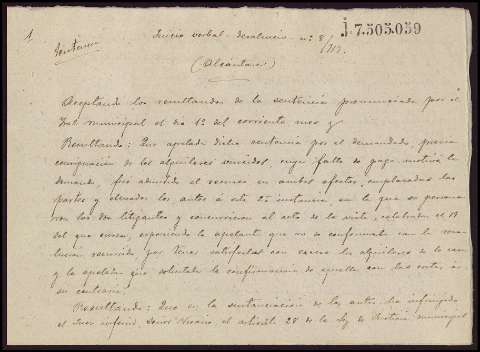 1
J.7.505.059
Sentencia
Juicio verbal desahucio nº 8/
(Alcántara)
Aceptando los resultandos de la sentencia pronunciada por el
Tral municipal el dia 1º del corriente mes y
Resultando: Que apelada dicha sentencia por el demandado, previa
consignación de los alquileres vencidos, cuya falta de pago motivó la
demanda, fué admitido el recurso en ambos efectos, emplazadas las
partes y elevados los autos á esta 2ª instancia, en la que se persona
ron los dos litigantes y concurrieron al acto de la vista, celebrada el 19
del que cursa, exponiendo la apelante que no se conformaba con la reso
lución recurrida por tener satisfechos con exceso los alquileres de la casa
y la apelada que solicitaba la confirmación de aquella con las costas á
su contrario.
Resultando: Que en la sustanciación de los autos ha infringido
el Juez inferior Señor el artículo 28 de la ley de Justicia municipal